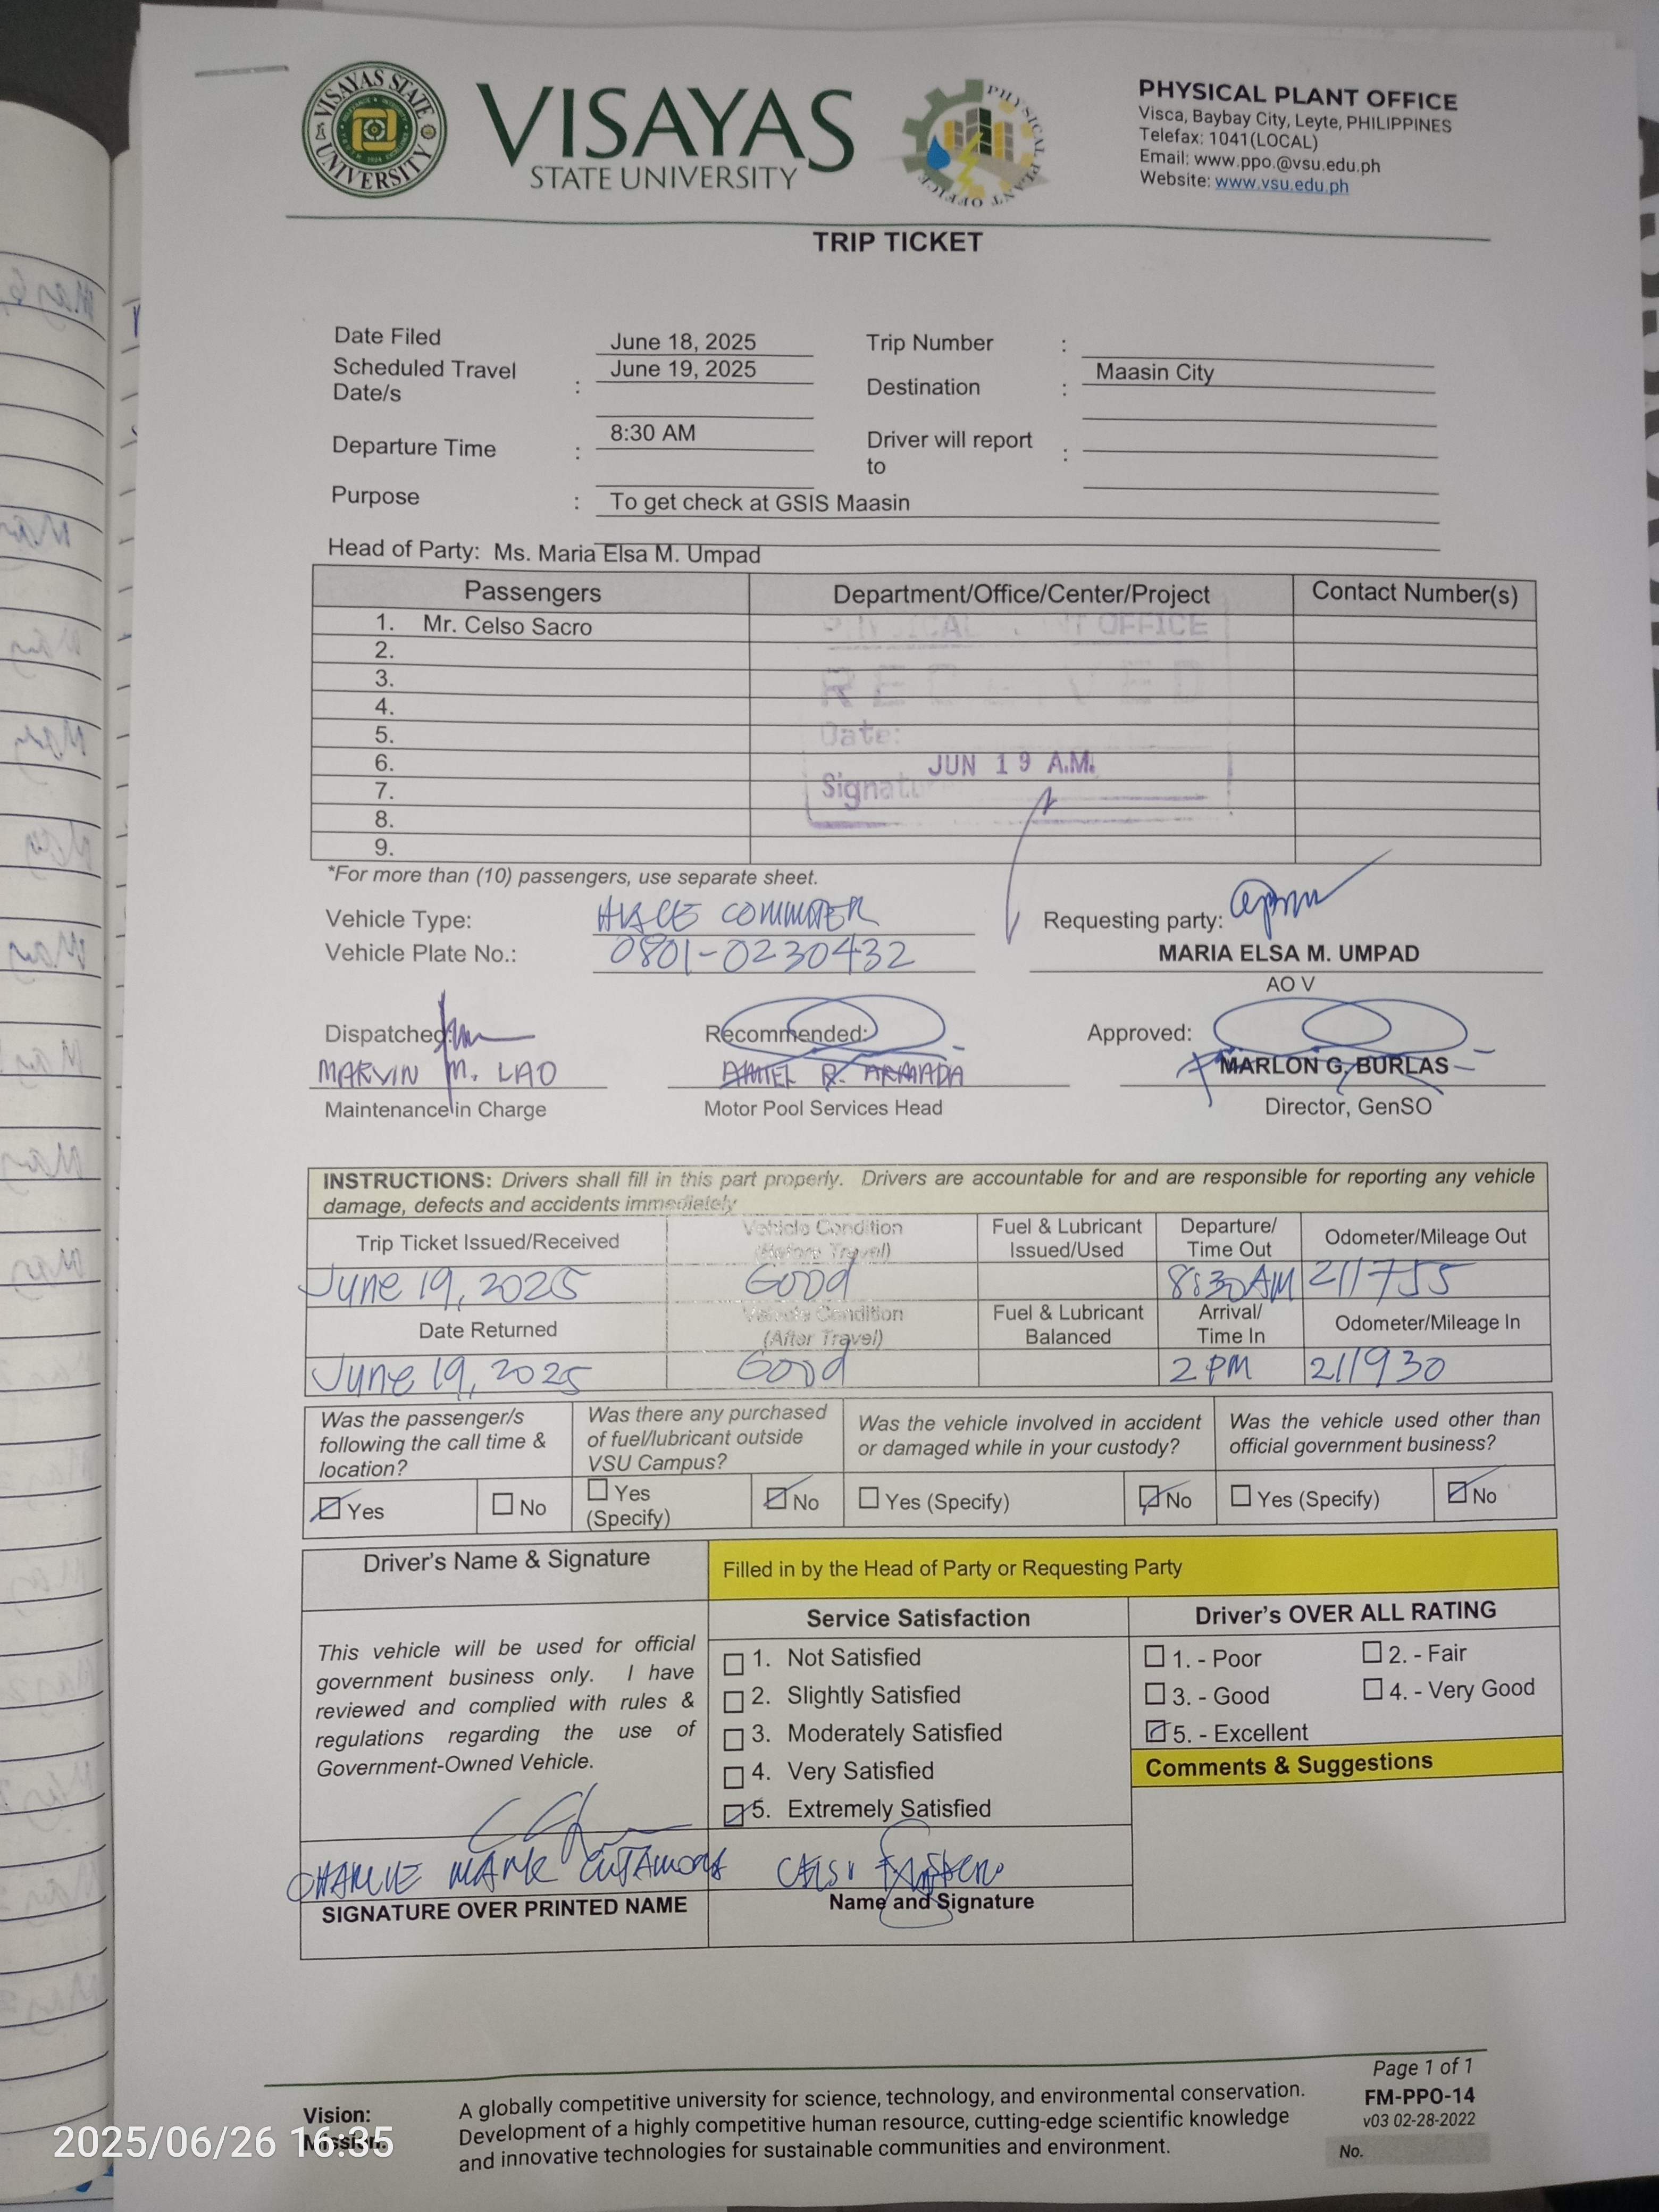 VISAYAS STATE UNIVERSITY
VISAYAS
STATE UNIVERSITY
PHYSICAL PLANT OFFICE
PHYSICAL PLANT OFFICE
Visca, Baybay City, Leyte, PHILIPPINES
Telefax: 1041(LOCAL)
Email: www.ppo.@vsu.edu.ph
Website: www.vsu.edu.ph
TRIP TICKET
Date Filed June 18, 2025 Trip Number :
Scheduled Travel Date/s : June 19, 2025 Destination : Maasin City
Departure Time : 8:30 AM Driver will report to :
Purpose : To get check at GSIS Maasin
Head of Party: Ms. Maria Elsa M. Umpad
Passengers Department/Office/Center/Project Contact Number(s)
1. Mr. Celso Sacro
2.
3.
4.
5.
6.
7.
8.
9.
OFFICE
RECEIVED
Date:
JUN 19 A.M.
Signature
*For more than (10) passengers, use separate sheet.
Vehicle Type: HIACE COMMUTER
Vehicle Plate No.: 0801-0230432
Requesting party:
MARIA ELSA M. UMPAD
AO V
Dispatched: Recommended: Approved:
MARVIN M. LAO R. ARMADA MARLON G. BURLAS
Maintenance in Charge Motor Pool Services Head Director, GenSO
INSTRUCTIONS: Drivers shall fill in this part properly. Drivers are accountable for and are responsible for reporting any vehicle
damage, defects and accidents immediately
Trip Ticket Issued/Received Vehicle Condition (Before Travel) Fuel & Lubricant Issued/Used Departure/ Time Out Odometer/Mileage Out
June 19, 2025 Good 8:30AM 211755
Date Returned Vehicle Condition (After Travel) Fuel & Lubricant Balanced Arrival/ Time In Odometer/Mileage In
June 19, 2025 Good 2 PM 211930
Was the passenger/s following the call time & location?
Was there any purchased of fuel/lubricant outside VSU Campus?
Was the vehicle involved in accident or damaged while in your custody?
Was the vehicle used other than official government business?
Yes No Yes (Specify) No Yes (Specify) No Yes (Specify) No
Driver's Name & Signature
Filled in by the Head of Party or Requesting Party
This vehicle will be used for official
government business only. I have
reviewed and complied with rules &
regulations regarding the use of
Government-Owned Vehicle.
Service Satisfaction
1. Not Satisfied
2. Slightly Satisfied
3. Moderately Satisfied
4. Very Satisfied
5. Extremely Satisfied
Driver's OVER ALL RATING
1. - Poor 2. - Fair
3. - Good 4. - Very Good
5. - Excellent
Comments & Suggestions
CHARLIE MARK
SIGNATURE OVER PRINTED NAME
Name and Signature
Page 1 of 1
FM-PPO-14
v03 02-28-2022
No.
Vision: A globally competitive university for science, technology, and environmental conservation.
Mission: Development of a highly competitive human resource, cutting-edge scientific knowledge
and innovative technologies for sustainable communities and environment.
2025/06/26 16:35